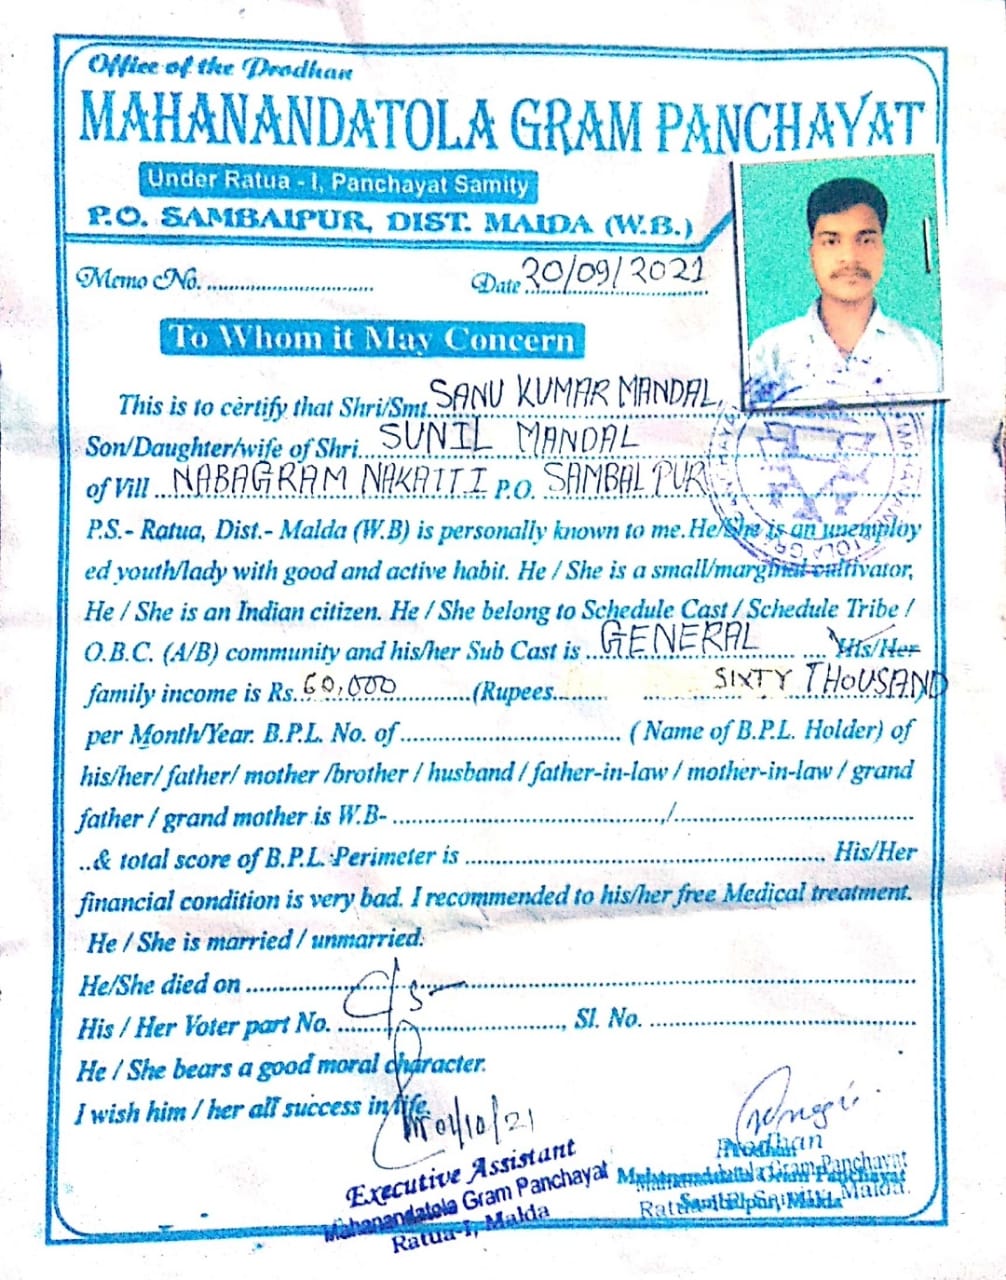 Office of the Prodhan
MAHANANDATOLA GRAM PANCHAYAT
Under Ratua - I, Panchayat Samity
P.O. SAMBALPUR, DIST. MALDA (W.B.)
Memo No. ............................ Date 20/09/2021
To Whom it May Concern
This is to certify that Shri/Smt. SANU KUMAR MANDAL,
Son/Daughter/wife of Shri SUNIL MANDAL
of Vill NABAGRAM NAKATTI P.O. SAMBALPUR
P.S.- Ratua, Dist.- Malda (W.B) is personally known to me.He/She is an unemploy
ed youth/lady with good and active habit. He / She is a small/marginal cultivator,
He / She is an Indian citizen. He / She belong to Schedule Cast / Schedule Tribe /
O.B.C. (A/B) community and his/her Sub Cast is GENERAL His/Her
family income is Rs. 60,000 (Rupees SIXTY THOUSAND
per Month/Year. B.P.L. No. of .................................... ( Name of B.P.L. Holder) of
his/her/ father/ mother /brother / husband / father-in-law / mother-in-law / grand
father / grand mother is W.B- ............................................./........................................
..& total score of B.P.L. Perimeter is ............................................................ His/Her
financial condition is very bad. I recommended to his/her free Medical treatment.
He / She is married / unmarried.
He/She died on ....................................................................................
His / Her Voter part No. ......................................, Sl. No. .............................................
He / She bears a good moral character.
I wish him / her all success in life.
01/10/21
Executive Assistant
Mahanandatola Gram Panchayat
Ratua-I, Malda
Prodhan
Mahanandatola Gram Panchayat
Sambalpur, Malda